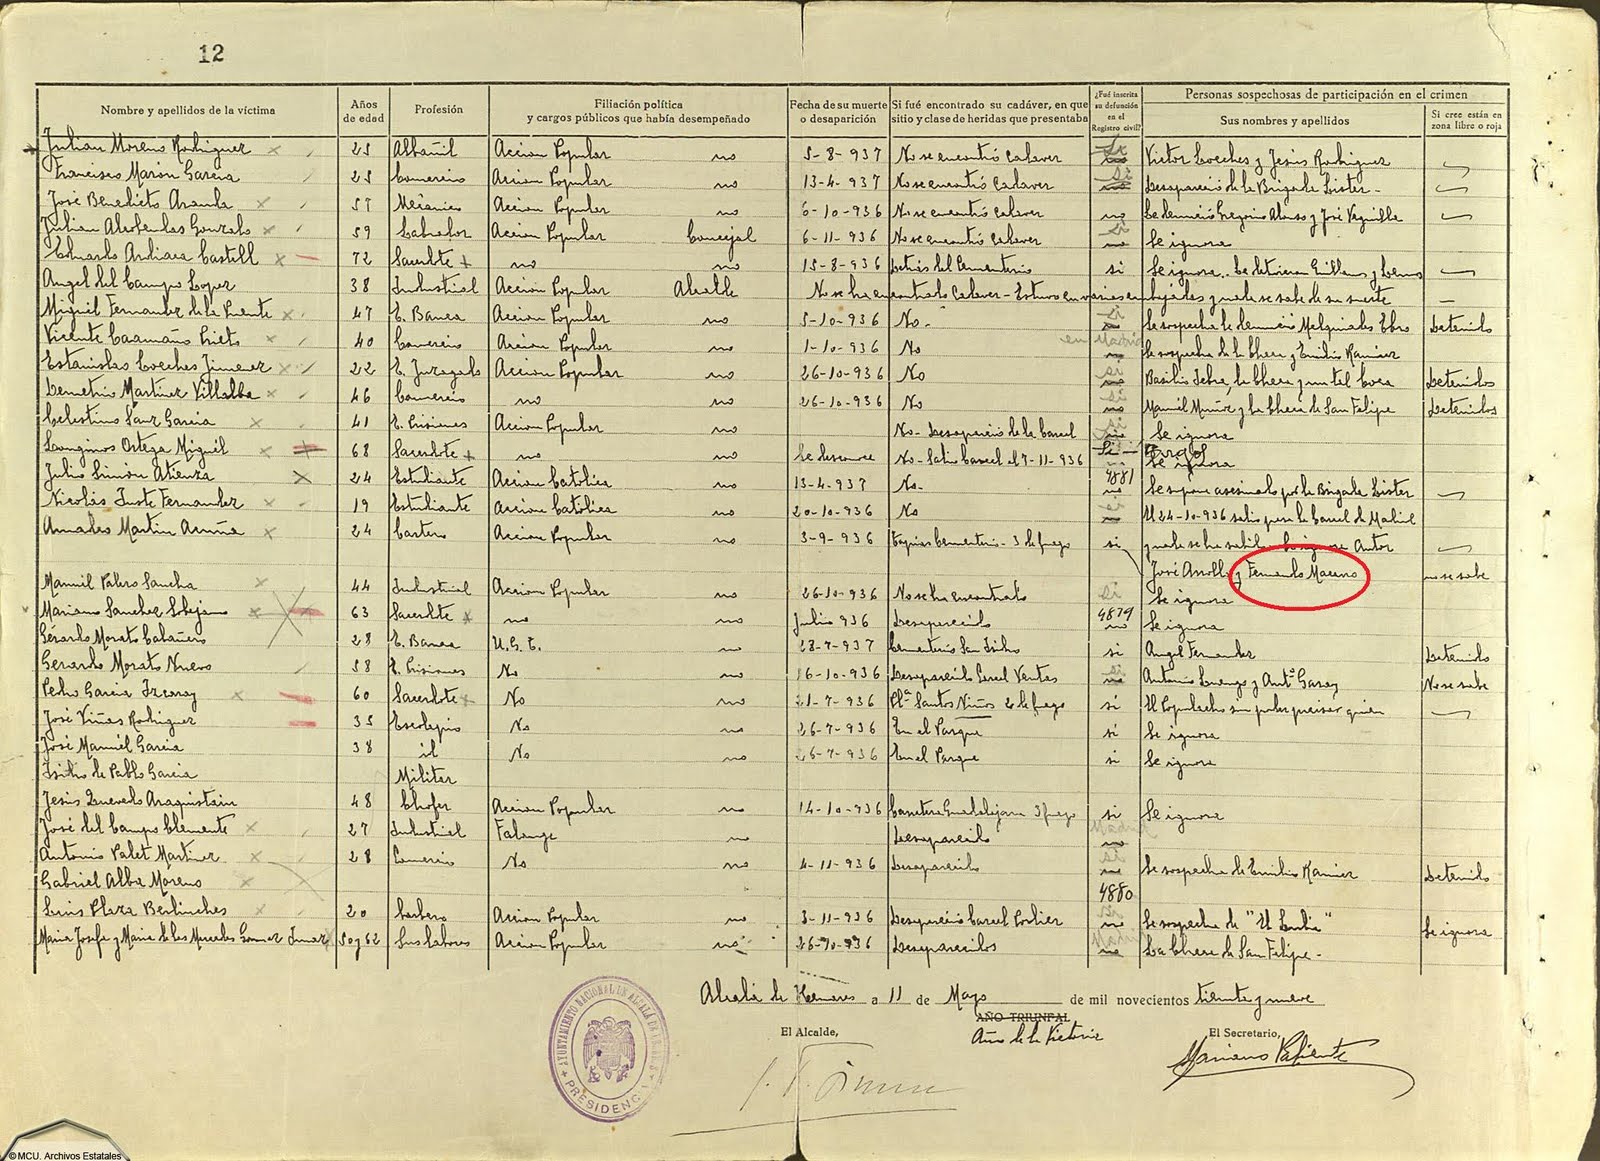 12
Nombre y apellidos de la víctima
Años de edad
Profesión
Filiación política y cargos públicos que había desempeñado
Fecha de su muerte o desaparición
Si fué encontrado su cadáver, en que sitio y clase de heridas que presentaba
¿Fué inscrita su defunción en el Registro civil?
Personas sospechosas de participación en el crimen
Sus nombres y apellidos
Si cree están en zona libre o roja
Julian Moreno Rodriguez 25 Albañil Accion Popular no 5-8-937 No se encontró cadaver Victor Loeches y Jesús Rodriguez
Francisco Marón Garcia 25 Comercio Accion Popular no 13-4-937 No se encontró cadaver si Desapareció de la Brigada Lister
José Benedicto Aranda 57 Mecánico Accion Popular no 6-10-936 No se encontró cadaver no Le denunció Gregorio Alonso y José
Julian Gonzalo 59 Labrador Accion Popular Concejal 6-11-936 No se encontró cadaver si no Se ignora
Eduardo Ardiaca Castell 72 Sacerdote no no 15-8-936 Detrás del Cementerio si Se ignora. Le detuvieron Guillens y Lemus
Angel del Campo Lopez 38 Industrial Accion Popular Alcalde No se ha encontrado Cadaver - Estuvo en varias embajadas y nada se sabe de su suerte
Miguel Fernandez de la Puente 47 E. Banca Accion Popular no 5-10-936 No- si Se sospecha le denunció Melquiades Ebro Detenido
Vicente Caamaño Prieto 40 Comercio Accion Popular no 1-10-936 No en Madrid no Se sospecha de la checa y Emilio Ramirez
Estanislao Loeches Jimenez 22 E. Juzgado Accion Popular no 26-10-936 No si no Basilio la checa y un tal Coca Detenidos
Demetrio Martinez Villalba 46 Comercio no no 26-10-936 No si no Manuel Muñoz y la checa de San Felipe Detenidos
Celestino Sanz Garcia 41 E. Prisiones Accion Popular no No- Desapareció de la Carcel si Se ignora
Longinos Ortega Miguel 68 Sacerdote no no Se desconoce No- Salio Carcel el 7-11-936 Se ignora
Julio Simón Atienza 24 Estudiante Accion Católica no 13-4-937 No- 4881 no Se supone asesinado por la Brigada Lister
Nicolás Juste Fernandez 19 Estudiante Accion Católica no 20-10-936 No El 24-10-936 salio para la Carcel de Madrid
Amadeo Martin Acuña 24 Cartero Accion Popular no 3-9-936 Tapias Cementerio- 3 de fuego si y nada se ha sabido. Se ignora Autor
José Arrollo y Fernando Moreno no se sabe
Manuel Palero Sancha 44 Industrial Accion Popular no 26-10-936 No se ha encontrado si Se ignora
Mariano Sanchez Lobejano 63 Sacerdote no no Julio 936 Desaparecido 4879 no Se ignora
Gerardo Morato Cabañero 28 E. Banca U.G.T. no 28-7-937 Cementerio San Isidro si Angel Fernandez Detenido
Gerardo Morato Nuevo 58 E. Prisiones No no 16-10-936 Desaparecido Carcel Ventas si no Antonio Luengo y Antº Garay No se sabe
Pedro Garcia Izcaray 60 Sacerdote No no 21-7-936 Plª Santos Niños 2 de fuego si El Populacho sin poder precisar quien
José Viñas Rodriguez 35 Escolapio No no 26-7-936 En el Parque si Se ignora
José Manuél Garcia 38 id No no 26-7-936 En el Parque si Se ignora
Isidro de Pablo Garcia Militar
Jesús Quevedo Araquistain 48 Chofer Accion Popular no 14-10-936 Carretera Guadalajara 3 fuego si Se ignora
José del Campo Clemente 27 Industrial Falange no Desaparecido Madrid no
Antonio Palet Martinez 28 Comercio No no 4-11-936 Desaparecido si no Se sospecha de Emilio Ramirez Detenido
Gabriel Alba Moreno 4880
Luis Plaza Berlinches 20 barbero Accion Popular no 3-11-936 Desapareció Carcel Porlier no Se sospecha de "El" Se ignora
Maria Josefa y Maria de las Mercedes Gomez 50 y 62 Sus labores Accion Popular no 26-10-936 Desaparecidos no La checa de San Felipe-
Alcalá de Henares a 11 de Mayo de mil novecientos treinta y nueve
AÑO TRIUNFAL
Año de la Victoria
El Alcalde,
El Secretario,
Mariano Lafuente
AYUNTAMIENTO NACIONAL DE ALCALÁ DE HENARES
PRESIDENCIA
© MCU. Archivos Estatales